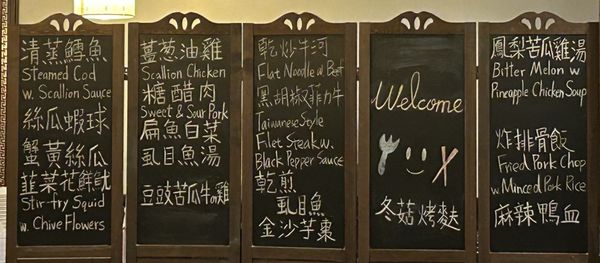 清蒸鱈魚
Steamed Cod
w. Scallion Sauce
絲瓜蝦球
蟹黃絲瓜
韮菜花鮮魷
Stir-fry Squid
w. Chive Flowers
薑葱油雞
Scallion Chicken
糖醋肉
Sweet & Sour Pork
扁魚白菜
虱目魚湯
豆豉苦瓜牛or雞
乾炒牛河
Flat Noodle w. Beef
黑胡椒菲力牛
Taiwanese Style
Filet Steak w.
Black Pepper Sauce
乾煎
虱目魚
金沙芋棗
Welcome
冬菇烤麩
鳳梨苦瓜雞湯
Bitter Melon w
Pineapple Chicken Soup
炸排骨飯
Fried Pork Chop
w. Minced Pork Rice
麻辣鴨血